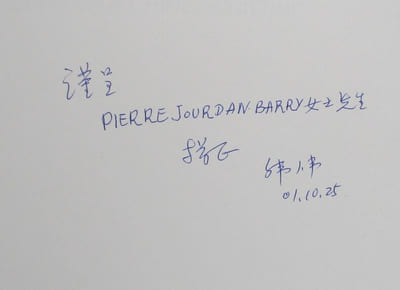 谨呈
PIERRE JOURDAN.BARRY女士先生
指正
01.10.25